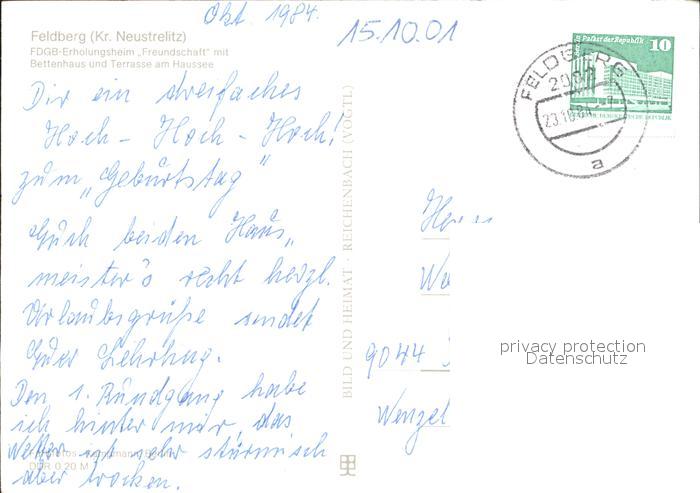 Okt. 1984.
15.10.01
Feldberg (Kr. Neustrelitz)
FDGB-Erholungsheim „Freundschaft" mit
Bettenhaus und Terrasse am Haussee
Dir ein dreifaches
Hoch - Hoch - Hoch!
zum „Geburtstag"
Euch beiden Haus„
meister's recht herzl.
Urlaubsgrüße sendet
Euer
Den 1. Rundgang habe
ich hinter mir, das
Wetter ist sehr stürmisch
aber trocken.
DDR 0,20 M
BILD UND HEIMAT · REICHENBACH (VOGTL)
Palast der Republik
10
FELDBERG
2082
a
Herrn
9044
Wenzel
privacy protection
Datenschutz